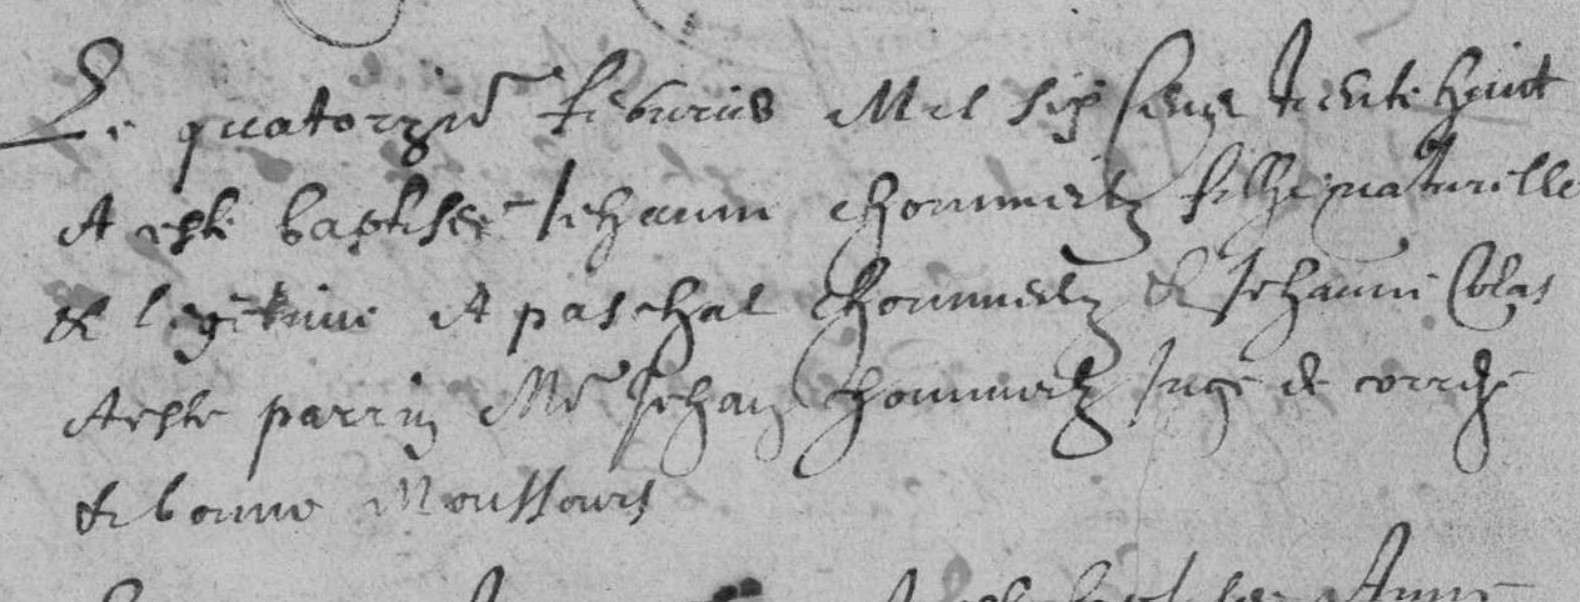 Le quatorzie feburier Mil six sens trente huict
A este baptisee Jehanne Chommetz filhe naturelle
& legitime A paschal Chommetz & Jehanne Colas
A este parrin Me Jehan Chommetz Juge de
& bonne